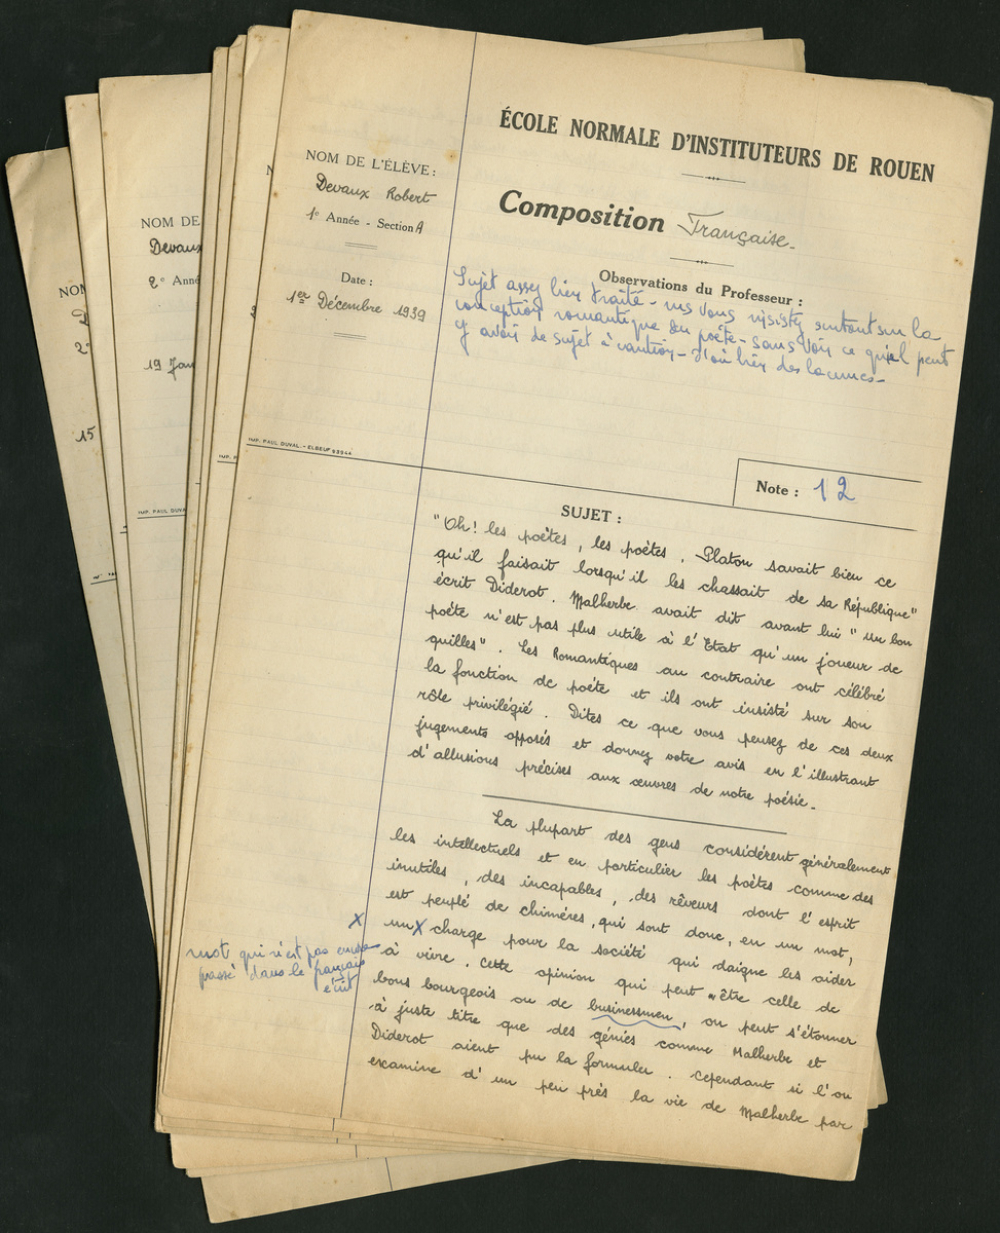 ÉCOLE NORMALE D'INSTITUTEURS DE ROUEN
NOM DE L'ÉLÈVE :
Devaux Robert
1e Année - Section A
Date :
1er Décembre 1939
Composition Française.
Observations du Professeur :
Sujet assez bien traité - mais vous insistez surtout sur la
conception romantique du poète - sans voir ce qu'el peut
y avoir de sujet à caution - d'où bien des lacunes -
IMP. PAUL DUVAL. - ELBEUF
Note : 12
SUJET :
"Oh! les poètes, les poètes. Platon savait bien ce
qu'il faisait lorsqu'il les chassait de sa République"
écrit Diderot. Malherbe avait dit avant lui "un bon
poète n'est pas plus utile à l'Etat qu'un joueur de
quilles". Les Romantiques au contraire ont célébré
la fonction de poète et ils ont insisté sur son
rôle privilégié. Dites ce que vous pensez de ces deux
jugements opposés et donnez votre avis en l'illustrant
d'allusions précises aux œuvres de notre poésie.
La plupart des gens considérent généralement
les intellectuels et en particulier les poètes comme des
inutiles, des incapables, des rêveurs dont l'esprit
est peuplé de chimères, qui sont donc, en un mot,
X
un X charge pour la société qui daigne les aider
à vivre. Cette opinion qui peut être celle de
bons bourgeois ou de businessmen, on peut s'étonner
à juste titre que des génies comme Malherbe et
Diderot aient pu la formuler. Cependant si l'on
examine d'un peu près la vie de Malherbe par
mot qui n'est pas encore
passé dans le français
écrit
NOM DE
Devaux
2e Anné
19 Jan
IMP. PAUL DUV
NOM
D
2
15